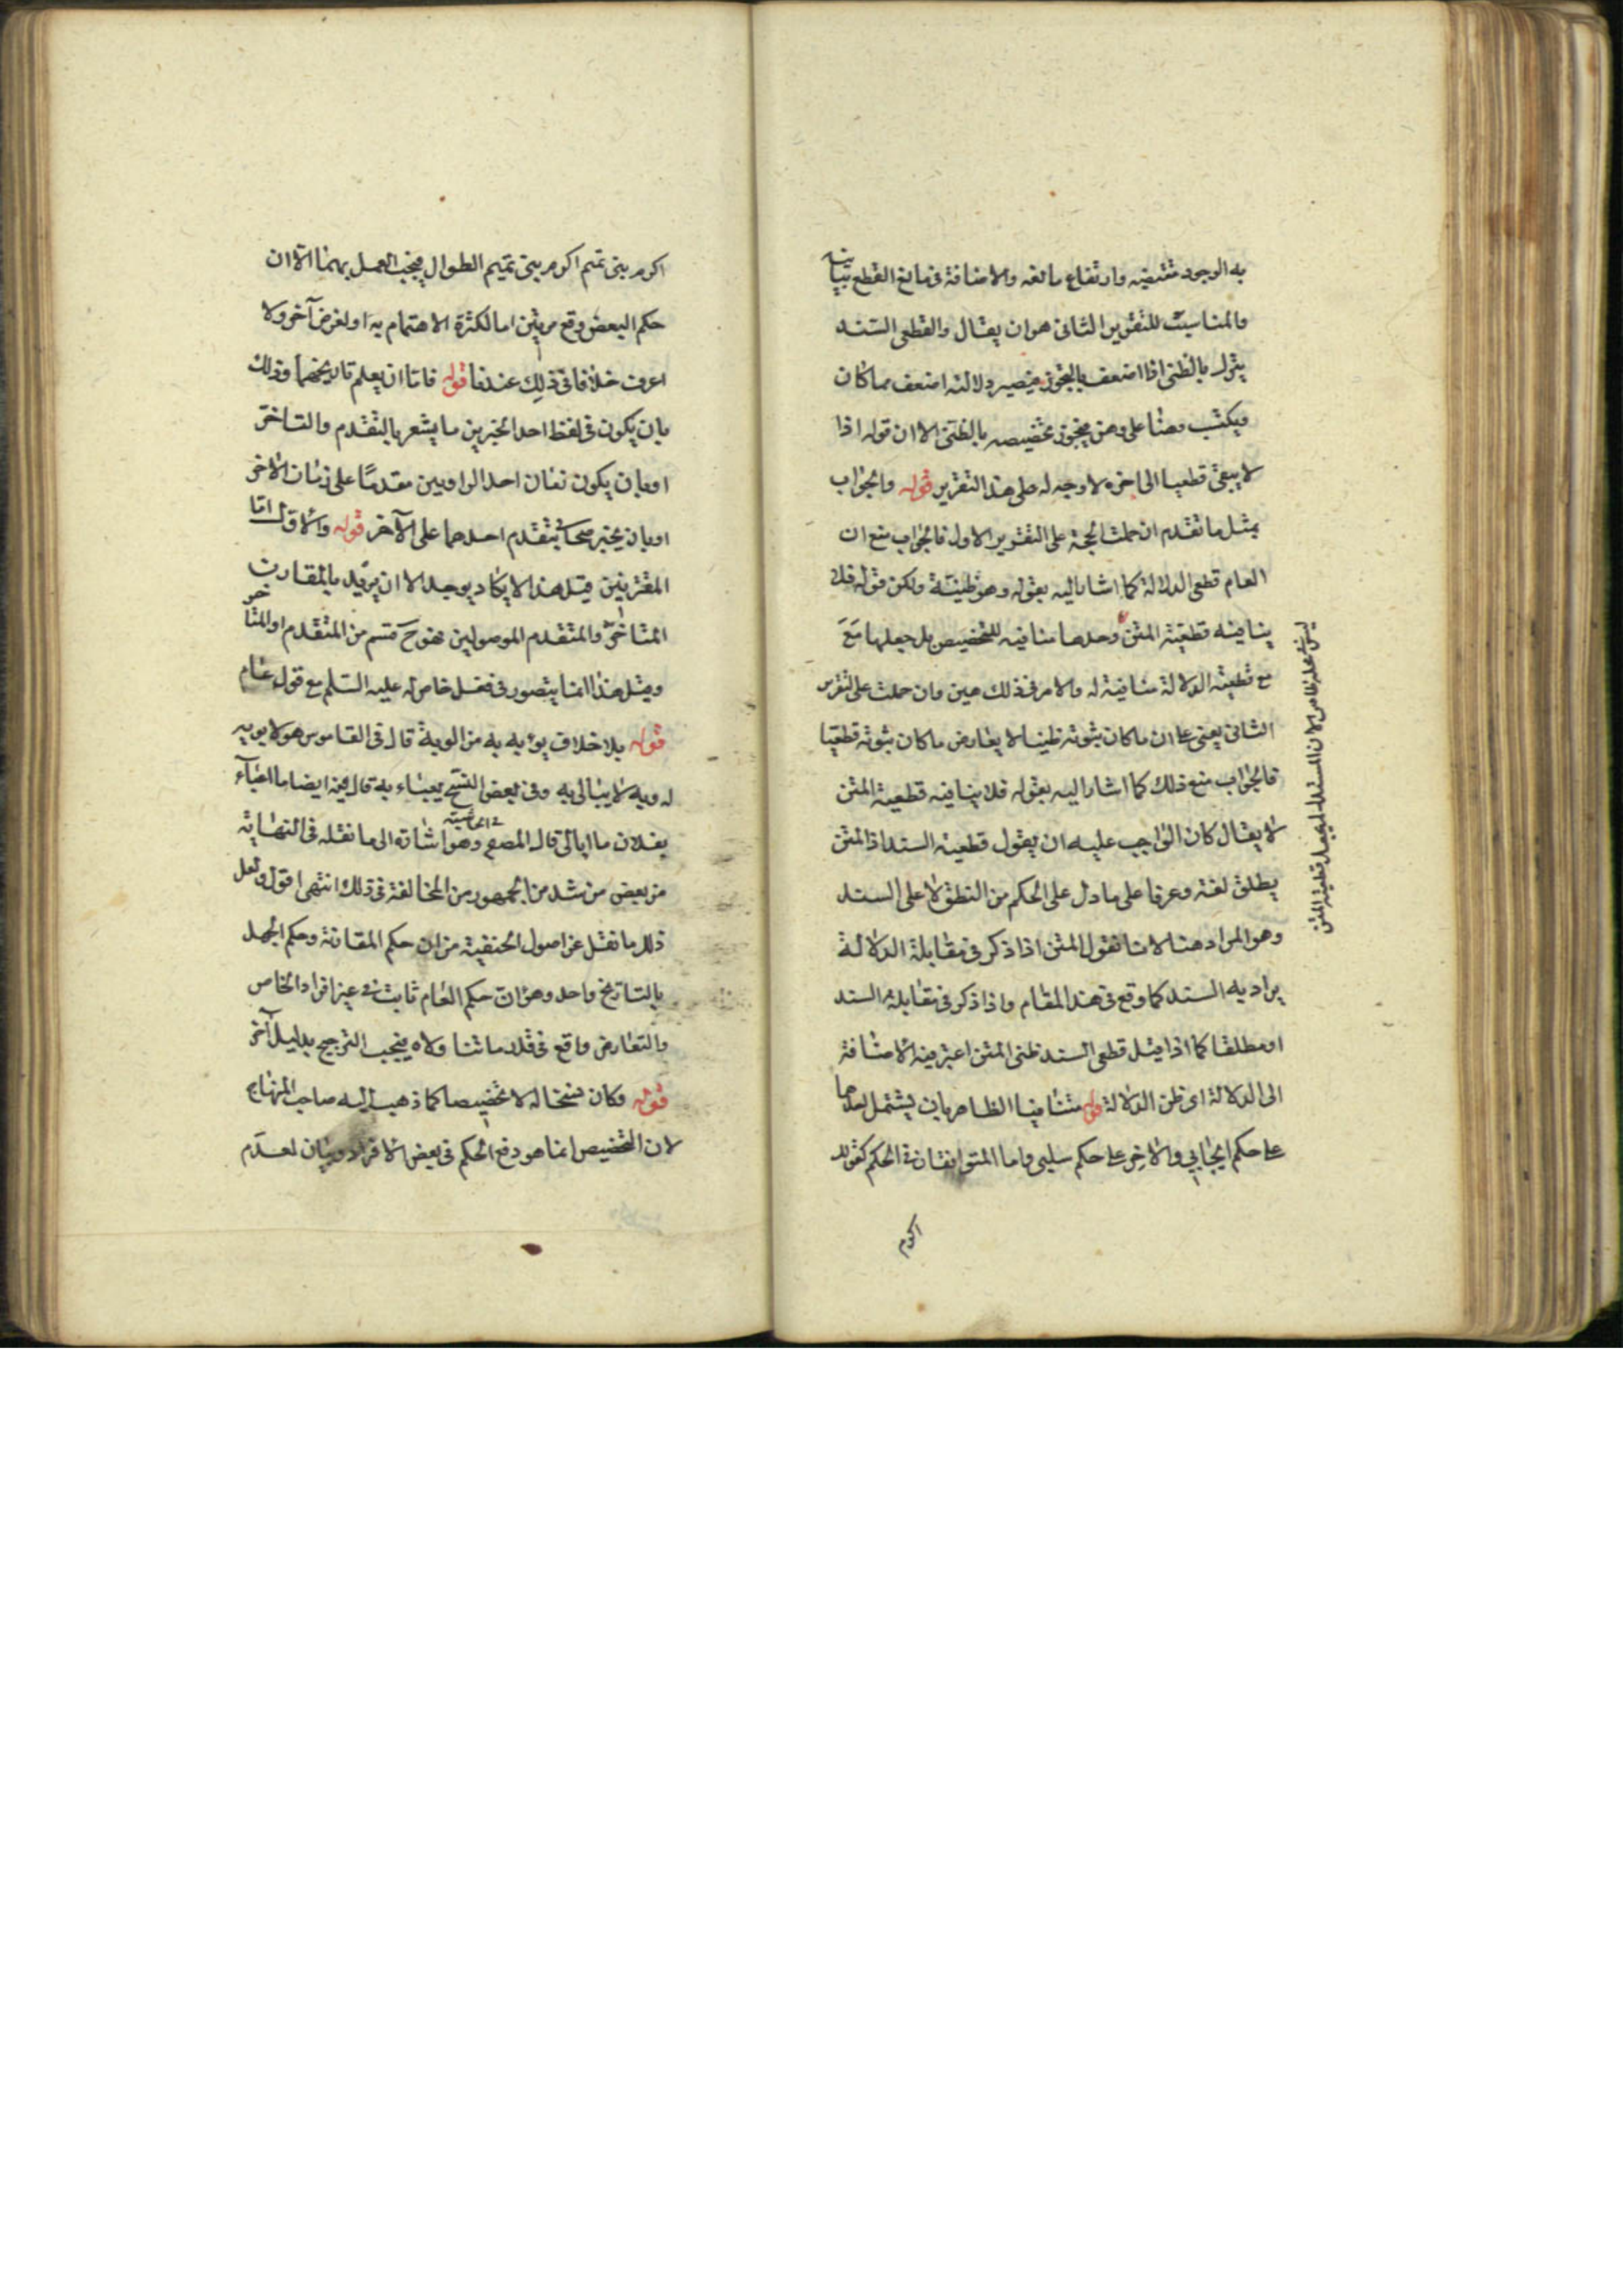 به الوجود مقتضيه وارتفاع مانعه والاضافة في مانع القطع بيانية
والمناسب للتقرير الثاني هو ان يقال والقطعى السند
يترك بالظنى اذا ضعف بالتجوز فيصير دلالته اضعف مما كان
ويكتب وهنا على وهن فيجوز تخصيصه بالظنى الا ان قوله اذا
لا يبقى قطعيا الى اخره لا وجه له على هذا التقرير قوله والجواب
بمثل ما تقدم ان حملت الحجة على التقرير الاول فالجواب منع ان
العام قطعى الدلالة كما اشار اليه بقوله وهو ظنية ولكن قوله فلا
ينافيه قطعية المتن وحدها منافيه للتخصيص بل جعلها مع
مع قطعية الدلالة منافية له والامر فى ذلك هين وان حملت على التقرير
الثانى يعنى على ان ما كان ثبوته ظنيا لا يعارض ما كان ثبوته قطعيا
فالجواب منع ذلك كما اشار اليه بقوله فلا ينافيه قطعية المتن
لا يقال كان الواجب عليه ان يقول قطعية السند اذ المتن
يطلق لغة وعرفا على ما دل على الحكم من النطق لا على السند
وهو المراد هنا لانا نقول المتن اذا ذكر فى مقابلة الدلالة
يراد به السند كما وقع فى هذا المقام واذا ذكر فى مقابلة السند
او مطلقا كما اذا قيل قطعى السند ظنى المتن اعتبر فيه الاضافة
الى الدلالة اى ظن الدلالة قوله متنافيا الظاهر بان يشتمل احدهما
على حكم ايجابي والاخر على حكم سلبى واما المتوافقان فى الحكم كقولك
اكرم
ليس عليه ظاهر لان المستدل لم يجعل قطعية المتن
اكرم بنى تميم اكرم بنى تميم الطوال فيجب العمل بهما الا ان
حكم البعض وقع مرتين اما لكثرة الاهتمام به او لغرض آخر ولا
اعرف خلافا فى ذلك عندنا قوله فاما ان يعلم تاريخهما وذلك
بان يكون فى لفظ احد الخبرين ما يشعر بالتقدم والتاخر
او بان يكون زمان احد الراويين مقدمًا على زمان الاخر
او بان يخبر صحابى بتقدم احدهما على الآخر قوله والاول اما
المقترنين قيل هذا لا يكاد يوجد الا ان يريد بالمقارن
المتاخر والمتقدم الموصولين فهو ح قسم من المتقدم او المتاخر
ومثل هذا انما يتصور فى فعل خاص له عليه السلم مع قول عام
قوله بلا خلاف يؤبه به من الوبه قال فى القاموس هو لا يوبه
له وبه لا يبالى به وفى بعض النسخ يعباء به قال فيه ايضا ما اعبآء
بفلان ما ابالى قال المصم فى الحاشية وهو اشارة الى ما نقله فى النهاية
من بعض من شد من الجمهور من المخالفة فى ذلك انتهى اقول ولعل
ذلك ما نقل عن اصول الحنفية من ان حكم المقارنة وحكم الجهل
بالتاريخ واحد وهو ان حكم العام ثابت فى غير افراد الخاص
والتعارض واقع فى قدر ما تناولاه فيجب الترجيح بدليل آخر
قوله وكان نسخا له لا تخصيصا كما ذهب اليه صاحب المنهاج
لان التخصيص انما هو دفع الحكم فى بعض الافراد وبيان لعدم